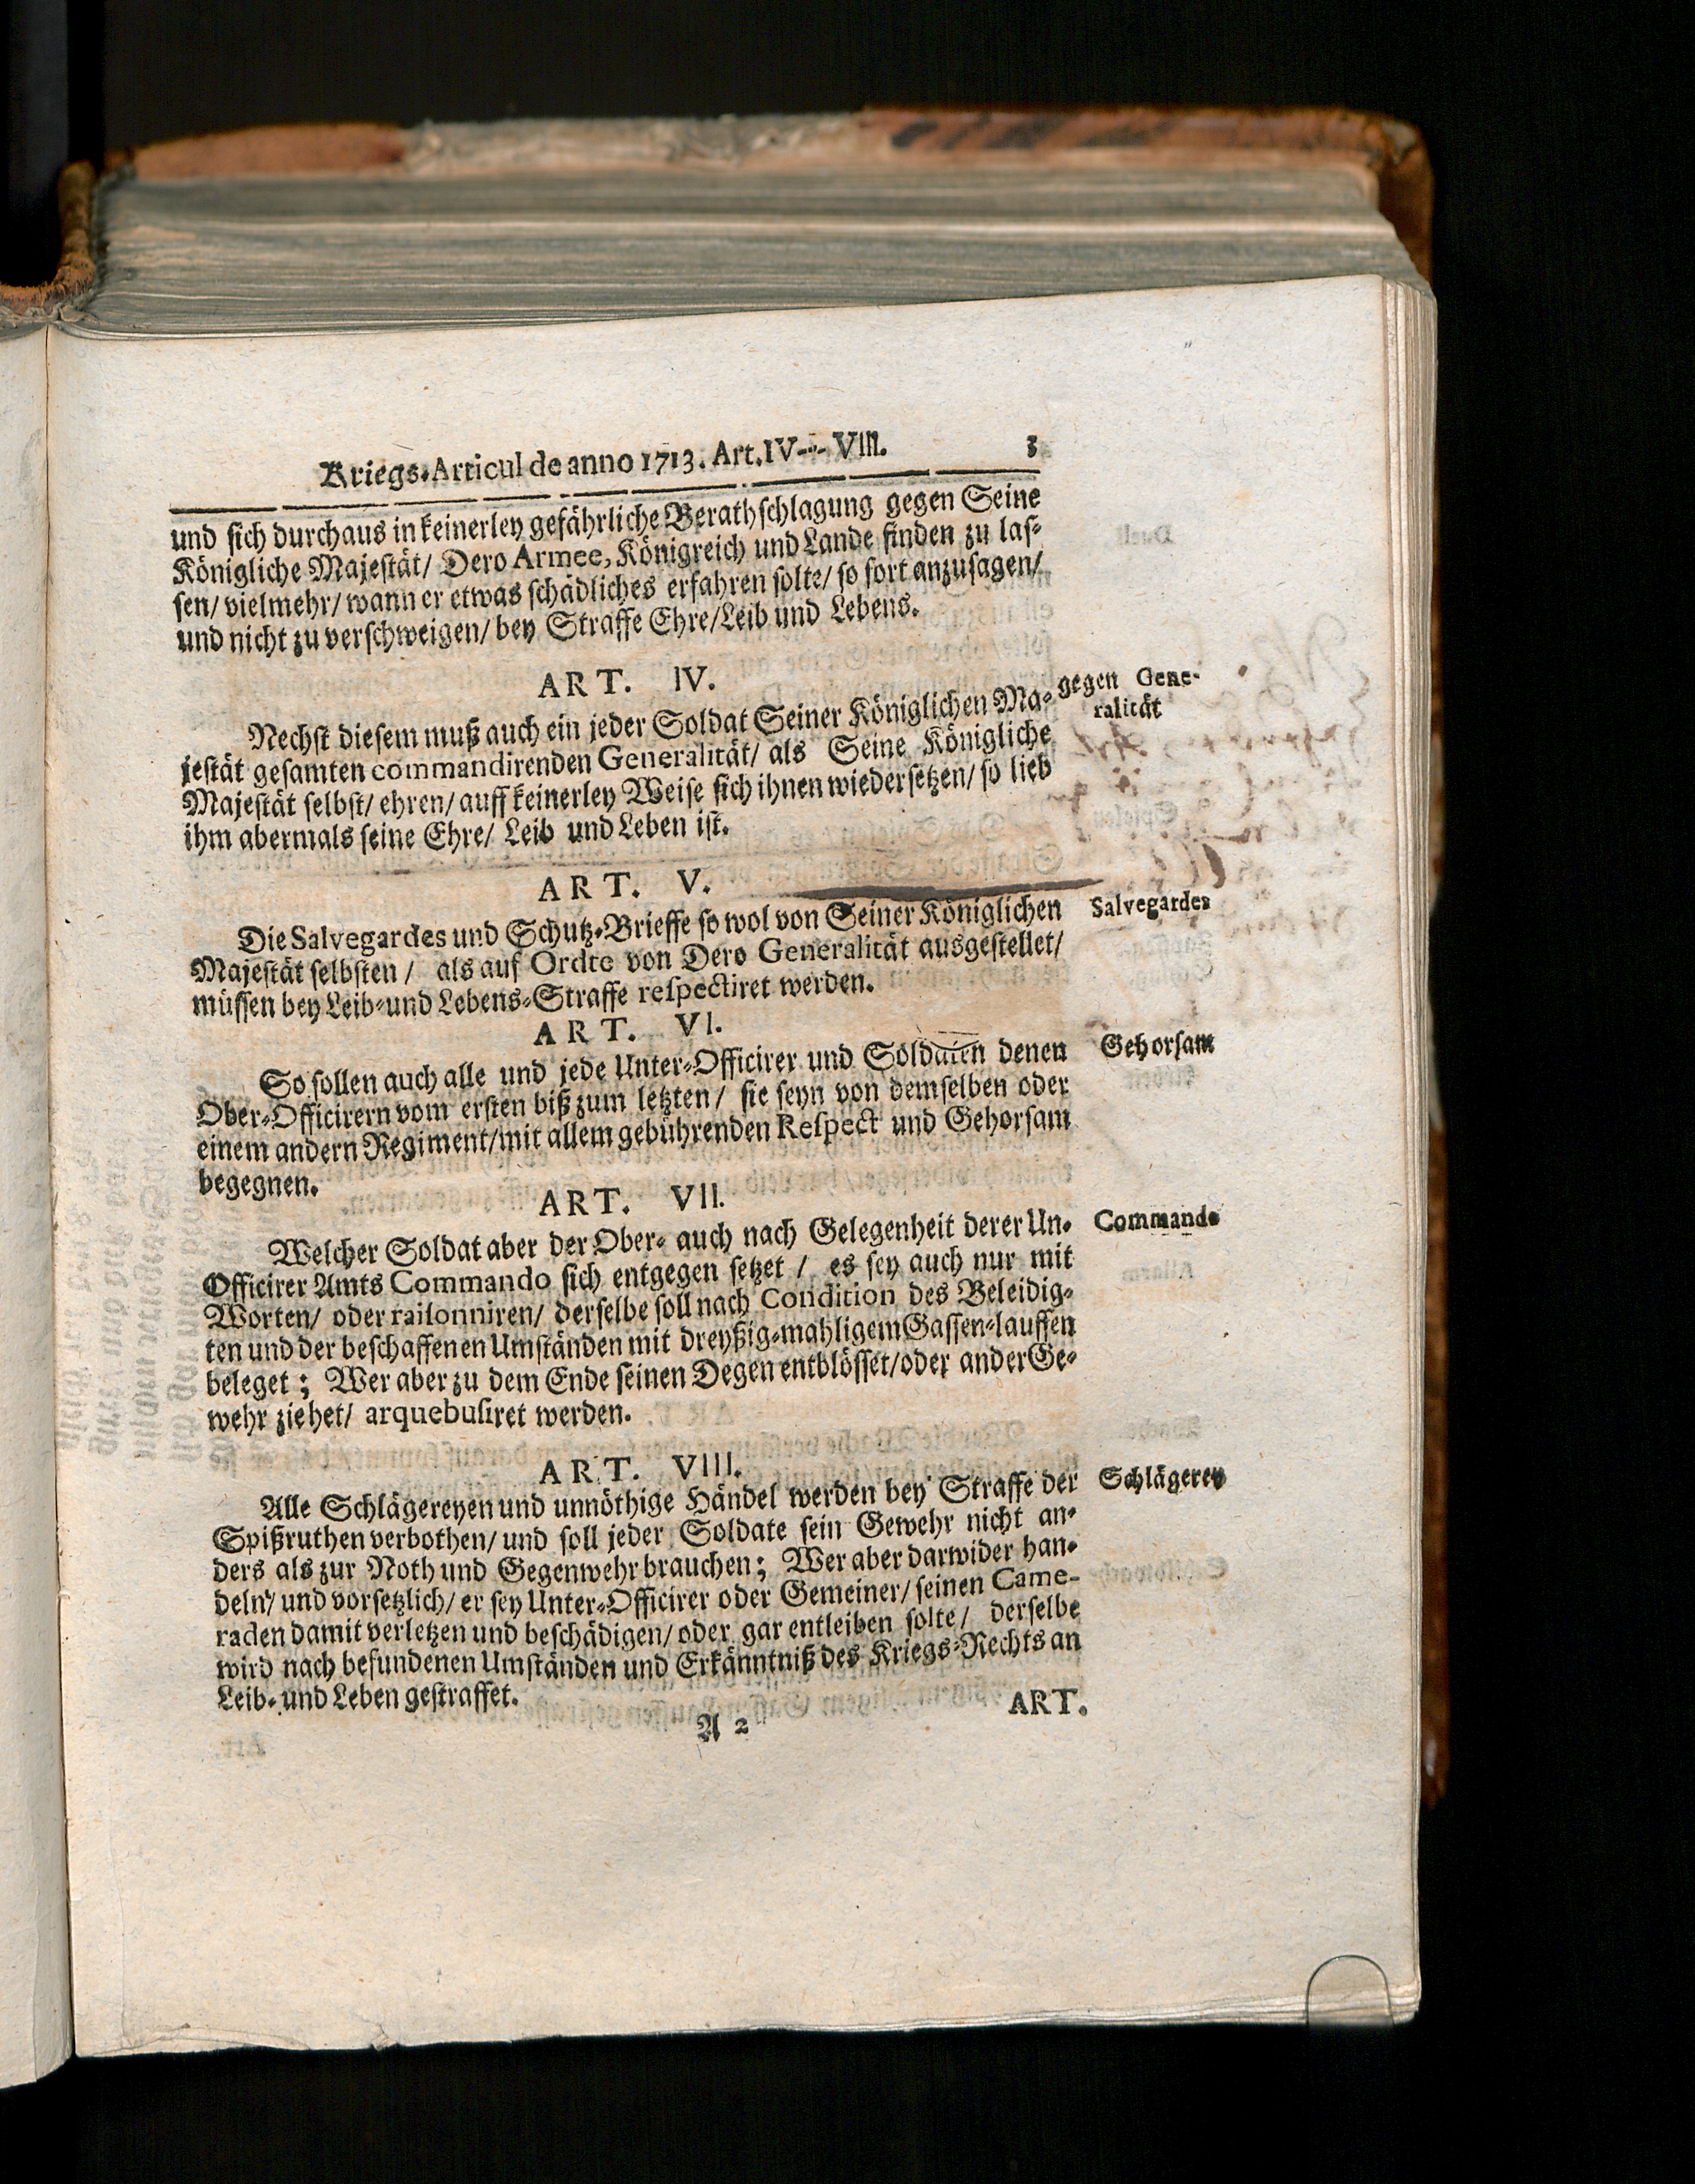 Kriegs-Articul de anno 1713. Art. IV---VIII. 3
und sich durchaus in keinerley gefährliche Berathschlagung gegen Seine
Königliche Majestät/ Dero Armee, Königreich und Lande finden zu las-
sen/ vielmehr/ wann er etwas schädliches erfahren solte/ so fort anzusagen/
und nicht zu verschweigen/ bey Straffe Ehre/ Leib und Lebens.
ART. IV.
gegen Gene-
ralität
Nechst diesem muß auch ein jeder Soldat Seiner Königlichen Ma-
jestät gesamten commandirenden Generalität/ als Seine Königliche
Majestät selbst/ ehren/ auff keinerley Weise sich ihnen wiedersetzen/ so lieb
ihm abermals seine Ehre/ Leib und Leben ist.
ART. V.
Salvegardes
Die Salvegardes und Schutz-Brieffe so wol von Seiner Königlichen
Majestät selbsten / als auf Ordre von Dero Generalität ausgestellet/
müssen bey Leib- und Lebens-Straffe respectiret werden.
ART. VI.
Gehorsam
So sollen auch alle und jede Unter-Officirer und Soldaten denen
Ober-Officirern vom ersten biß zum letzten / sie seyn von demselben oder
einem andern Regiment/ mit allem gebührenden Respect und Gehorsam
begegnen.
ART. VII.
Commando
Welcher Soldat aber der Ober- auch nach Gelegenheit derer Un-
Officirer Amts Commando sich entgegen setzet / es sey auch nur mit
Worten/ oder raisonniren/ derselbe soll nach Condition des Beleidig-
ten und der beschaffenen Umständen mit dreyßig-mahligem Gassen-lauffen
beleget; Wer aber zu dem Ende seinen Degen entblösset/ oder ander Ge-
wehr ziehet/ arquebusiret werden.
ART. VIII.
Schlägerey
Alle Schlägereyen und unnöthige Händel werden bey Straffe der
Spißruthen verbothen/ und soll jeder Soldate sein Gewehr nicht an-
ders als zur Noth und Gegenwehr brauchen; Wer aber darwider han-
deln/ und vorsetzlich/ er sey Unter-Officirer oder Gemeiner/ seinen Came-
raden damit verletzen und beschädigen/ oder gar entleiben solte/ derselbe
wird nach befundenen Umständen und Erkänntniß des Kriegs-Rechts an
Leib- und Leben gestraffet.
A 2 ART.